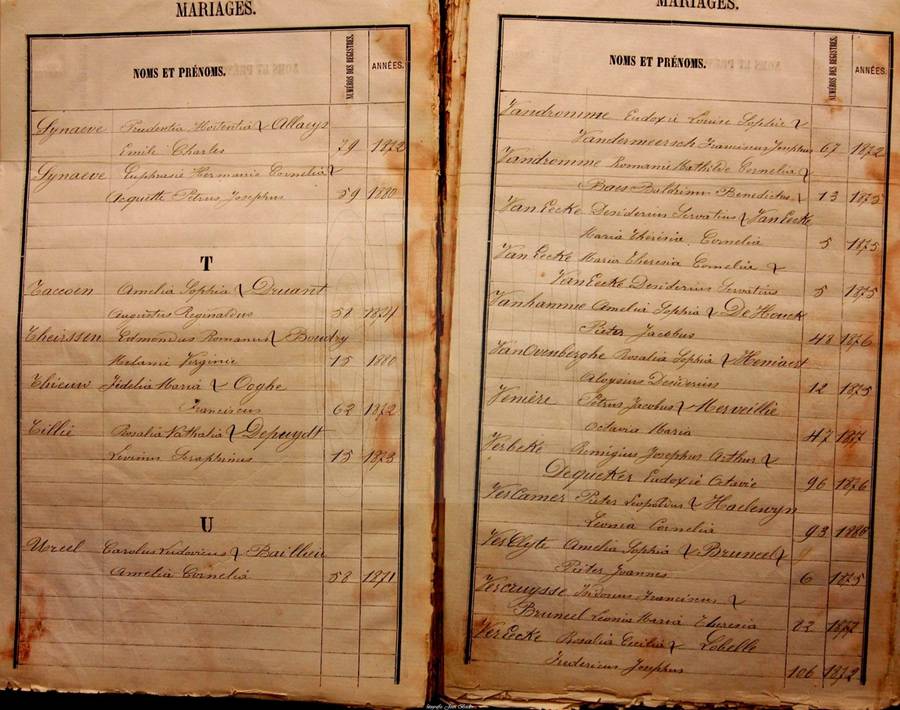 MARIAGES.
NOMS ET PRÉNOMS.
NUMÉROS DES REGISTRES.
ANNÉES.
Synaeve Prudentia Hortentia & Allaeys
Emile Charles 79 1872
Synaeve Euphrasie Hermanie Cornelia &
Acquette Petrus Josephus 59 1880
T
Taccoen Amelia Sophia & Druant
Augustus Reginaldus 58
Theirssen Edmondus Romanus & Boudry
Melanie Virginie 15 1880
Thieuw Fidelia Maria & Ooghe
Franciscus 62 1872
Tillie Rosalia Nathalia & Depuydt
Levinus Seraphinus 15 1873
U
Ureel Carolus Ludovicus & Baillieu
Amelia Cornelia 58 1871
MARIAGES.
NOMS ET PRÉNOMS.
NUMÉROS DES REGISTRES.
ANNÉES.
Vandromme Eudoxie Louise Sophie &
Vandermeersch Franciscus Josephus 67 1872
Vandromme Romanie Mathilde Cornelia &
Baes Benedictus 13 1875
VanEecke Desiderius Servatius & VanEecke
Maria Theresia Cornelia 5 1875
VanEecke Maria Theresia Cornelia &
VanEecke Desiderius Servatius 5 1875
Vanhamme Amelia Sophia & De Houck
Pieter Jacobus 48 1876
VanOvenberghe Rosalia Sophia & Heniaert
Aloysius Desiderius 12 1875
Venière Petrus Jacobus & Merveillie
Octavia Maria 47
Verbeke Remigius Josephus Arthur &
Dequeker Eudoxie Octavie 96 1876
VerCamer Pieter Leopoldus & Haelewyn
Leonia Cornelia 93
VerClyte Amelia Sophia & Bruneel
Pieter Joannes 6 1875
Vercruysse Isidorus Franciscus &
Bruneel Leonia Maria Theresia 82 1877
VerEecke Rosalia Cecilia & Lobelle
Fredericus Josephus 106 1872